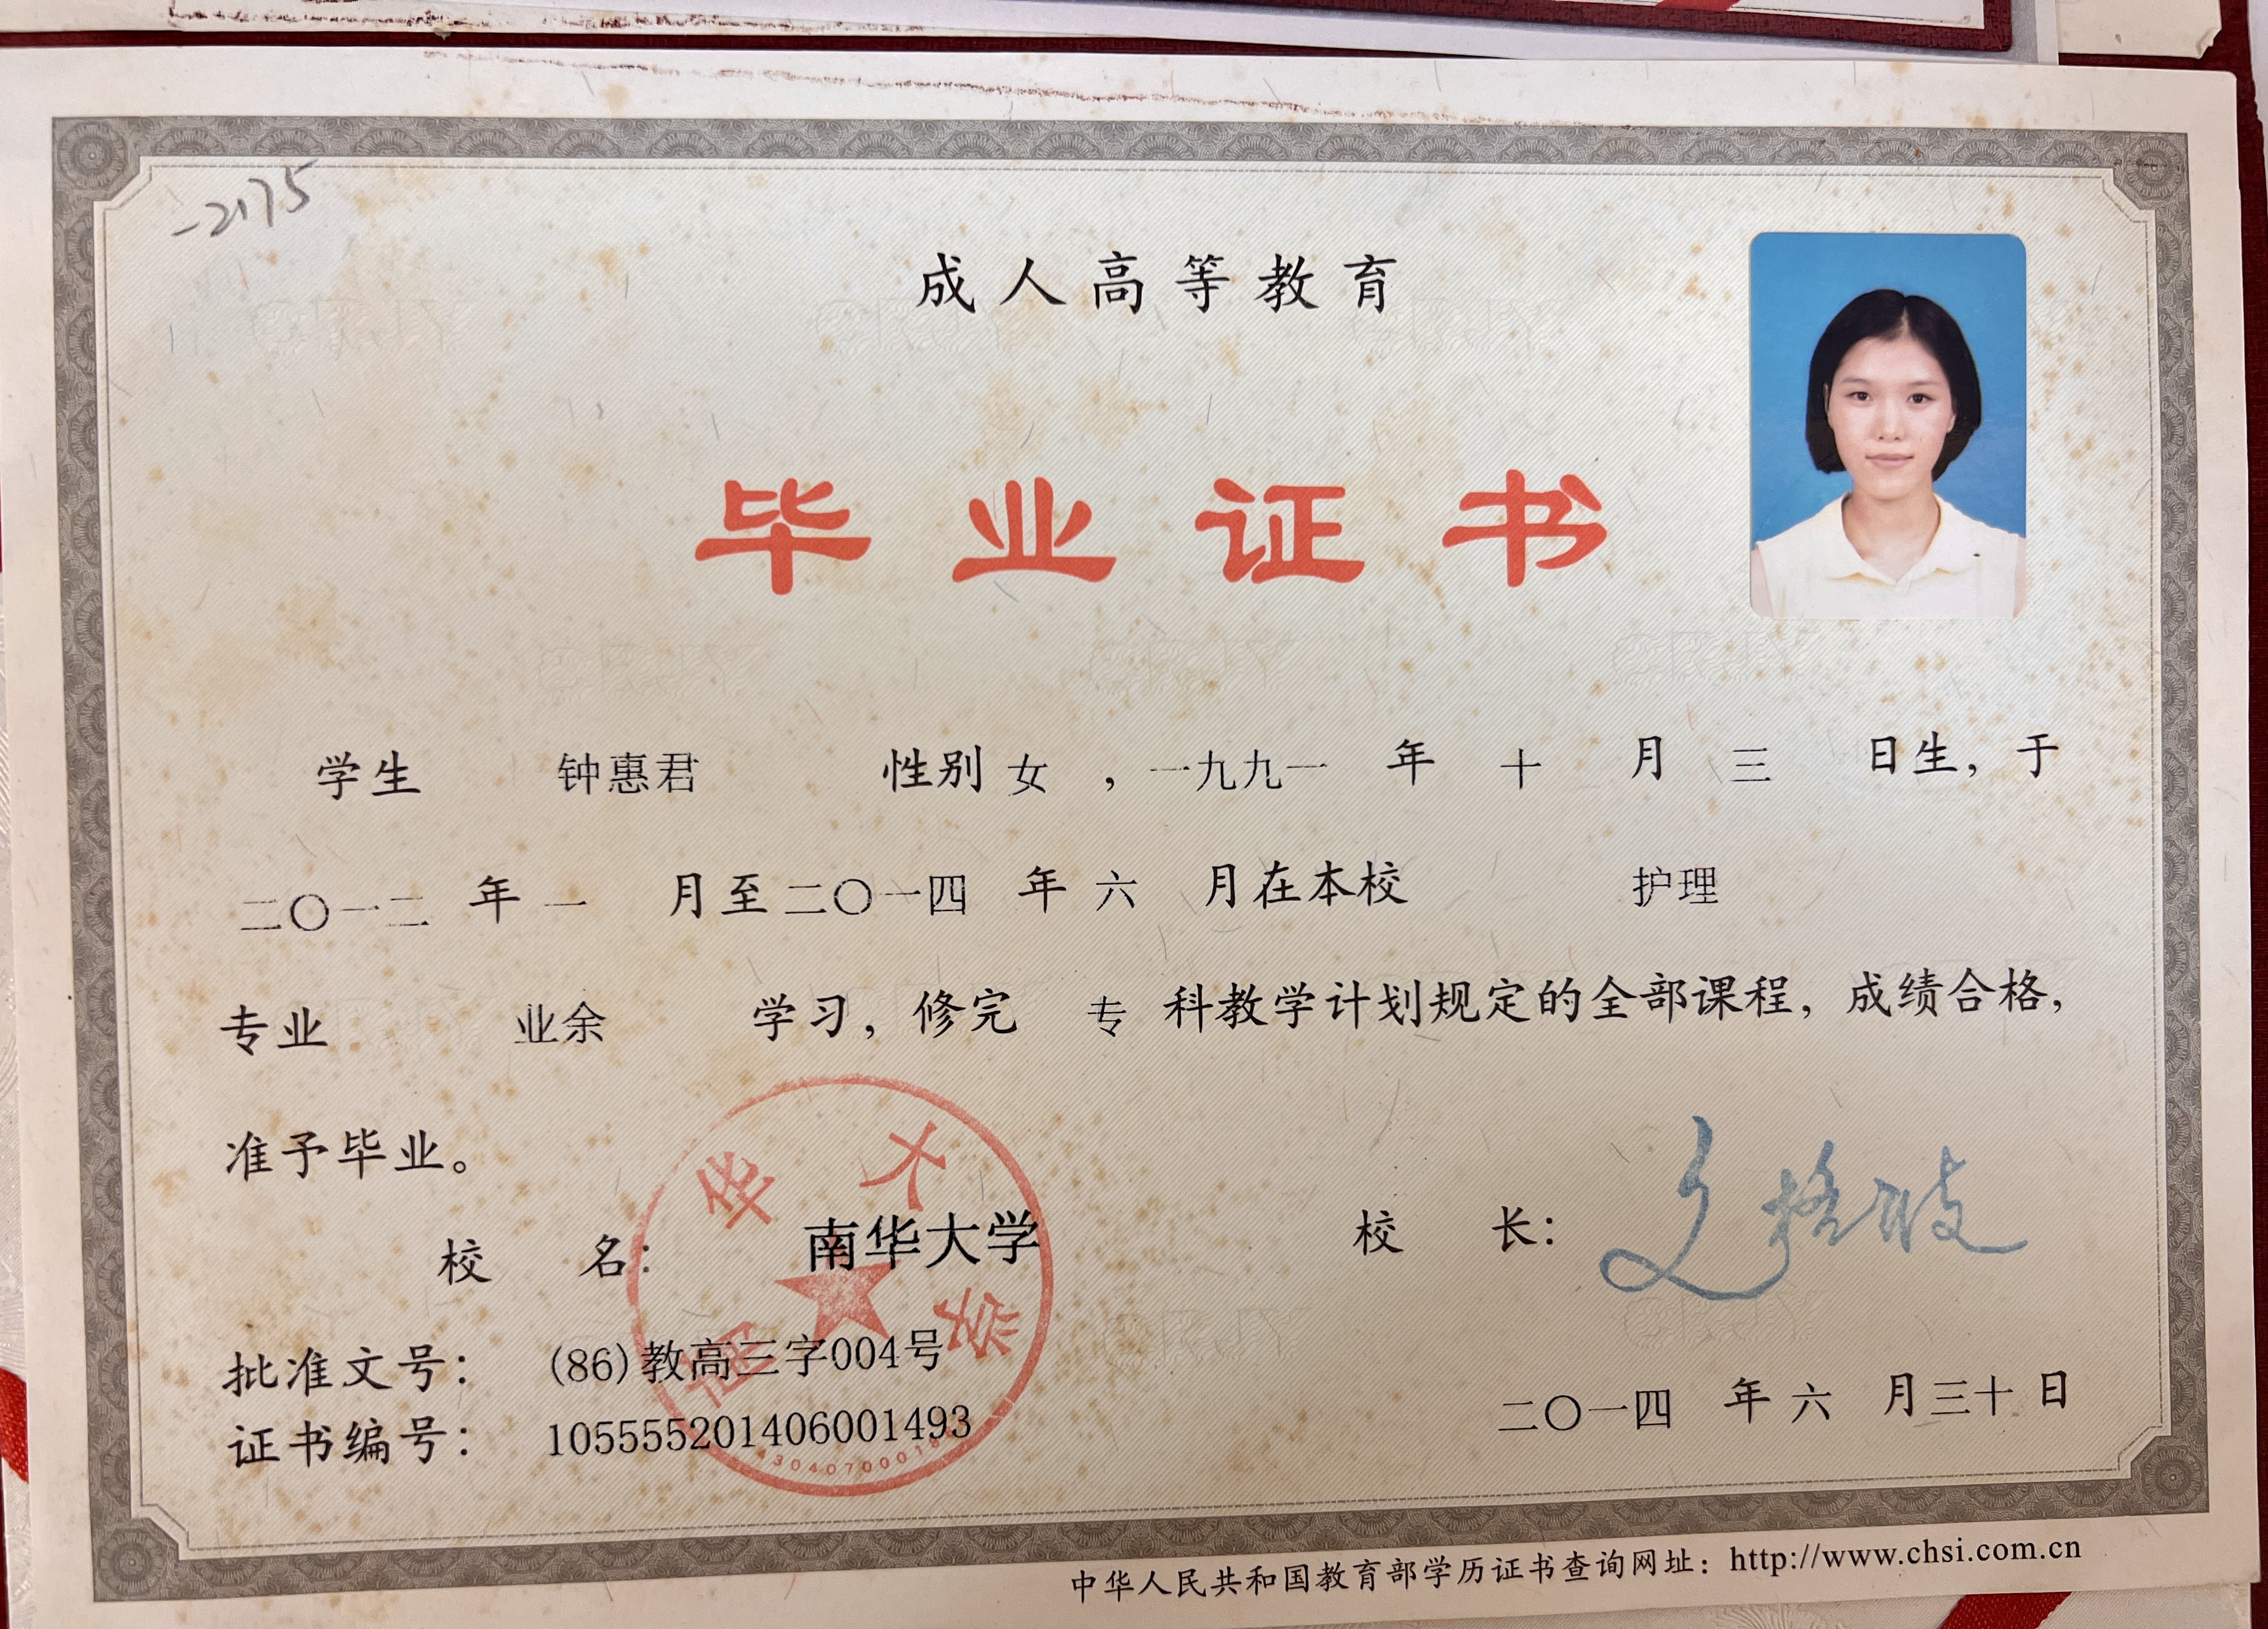 -2175
成人高等教育
毕业证书
学生 钟惠君 性别 女 ，一九九一 年 十 月 三 日生，于
二〇一二 年 一 月至 二〇一四 年 六 月在本校 护理
专业 业余 学习，修完 专 科教学计划规定的全部课程，成绩合格，
准予毕业。
校 名： 南华大学 校 长：
南华大学
批准文号： (86)教高三字004号
二〇一四 年 六 月三十 日
证书编号： 105555201406001493
中华人民共和国教育部学历证书查询网址：http://www.chsi.com.cn